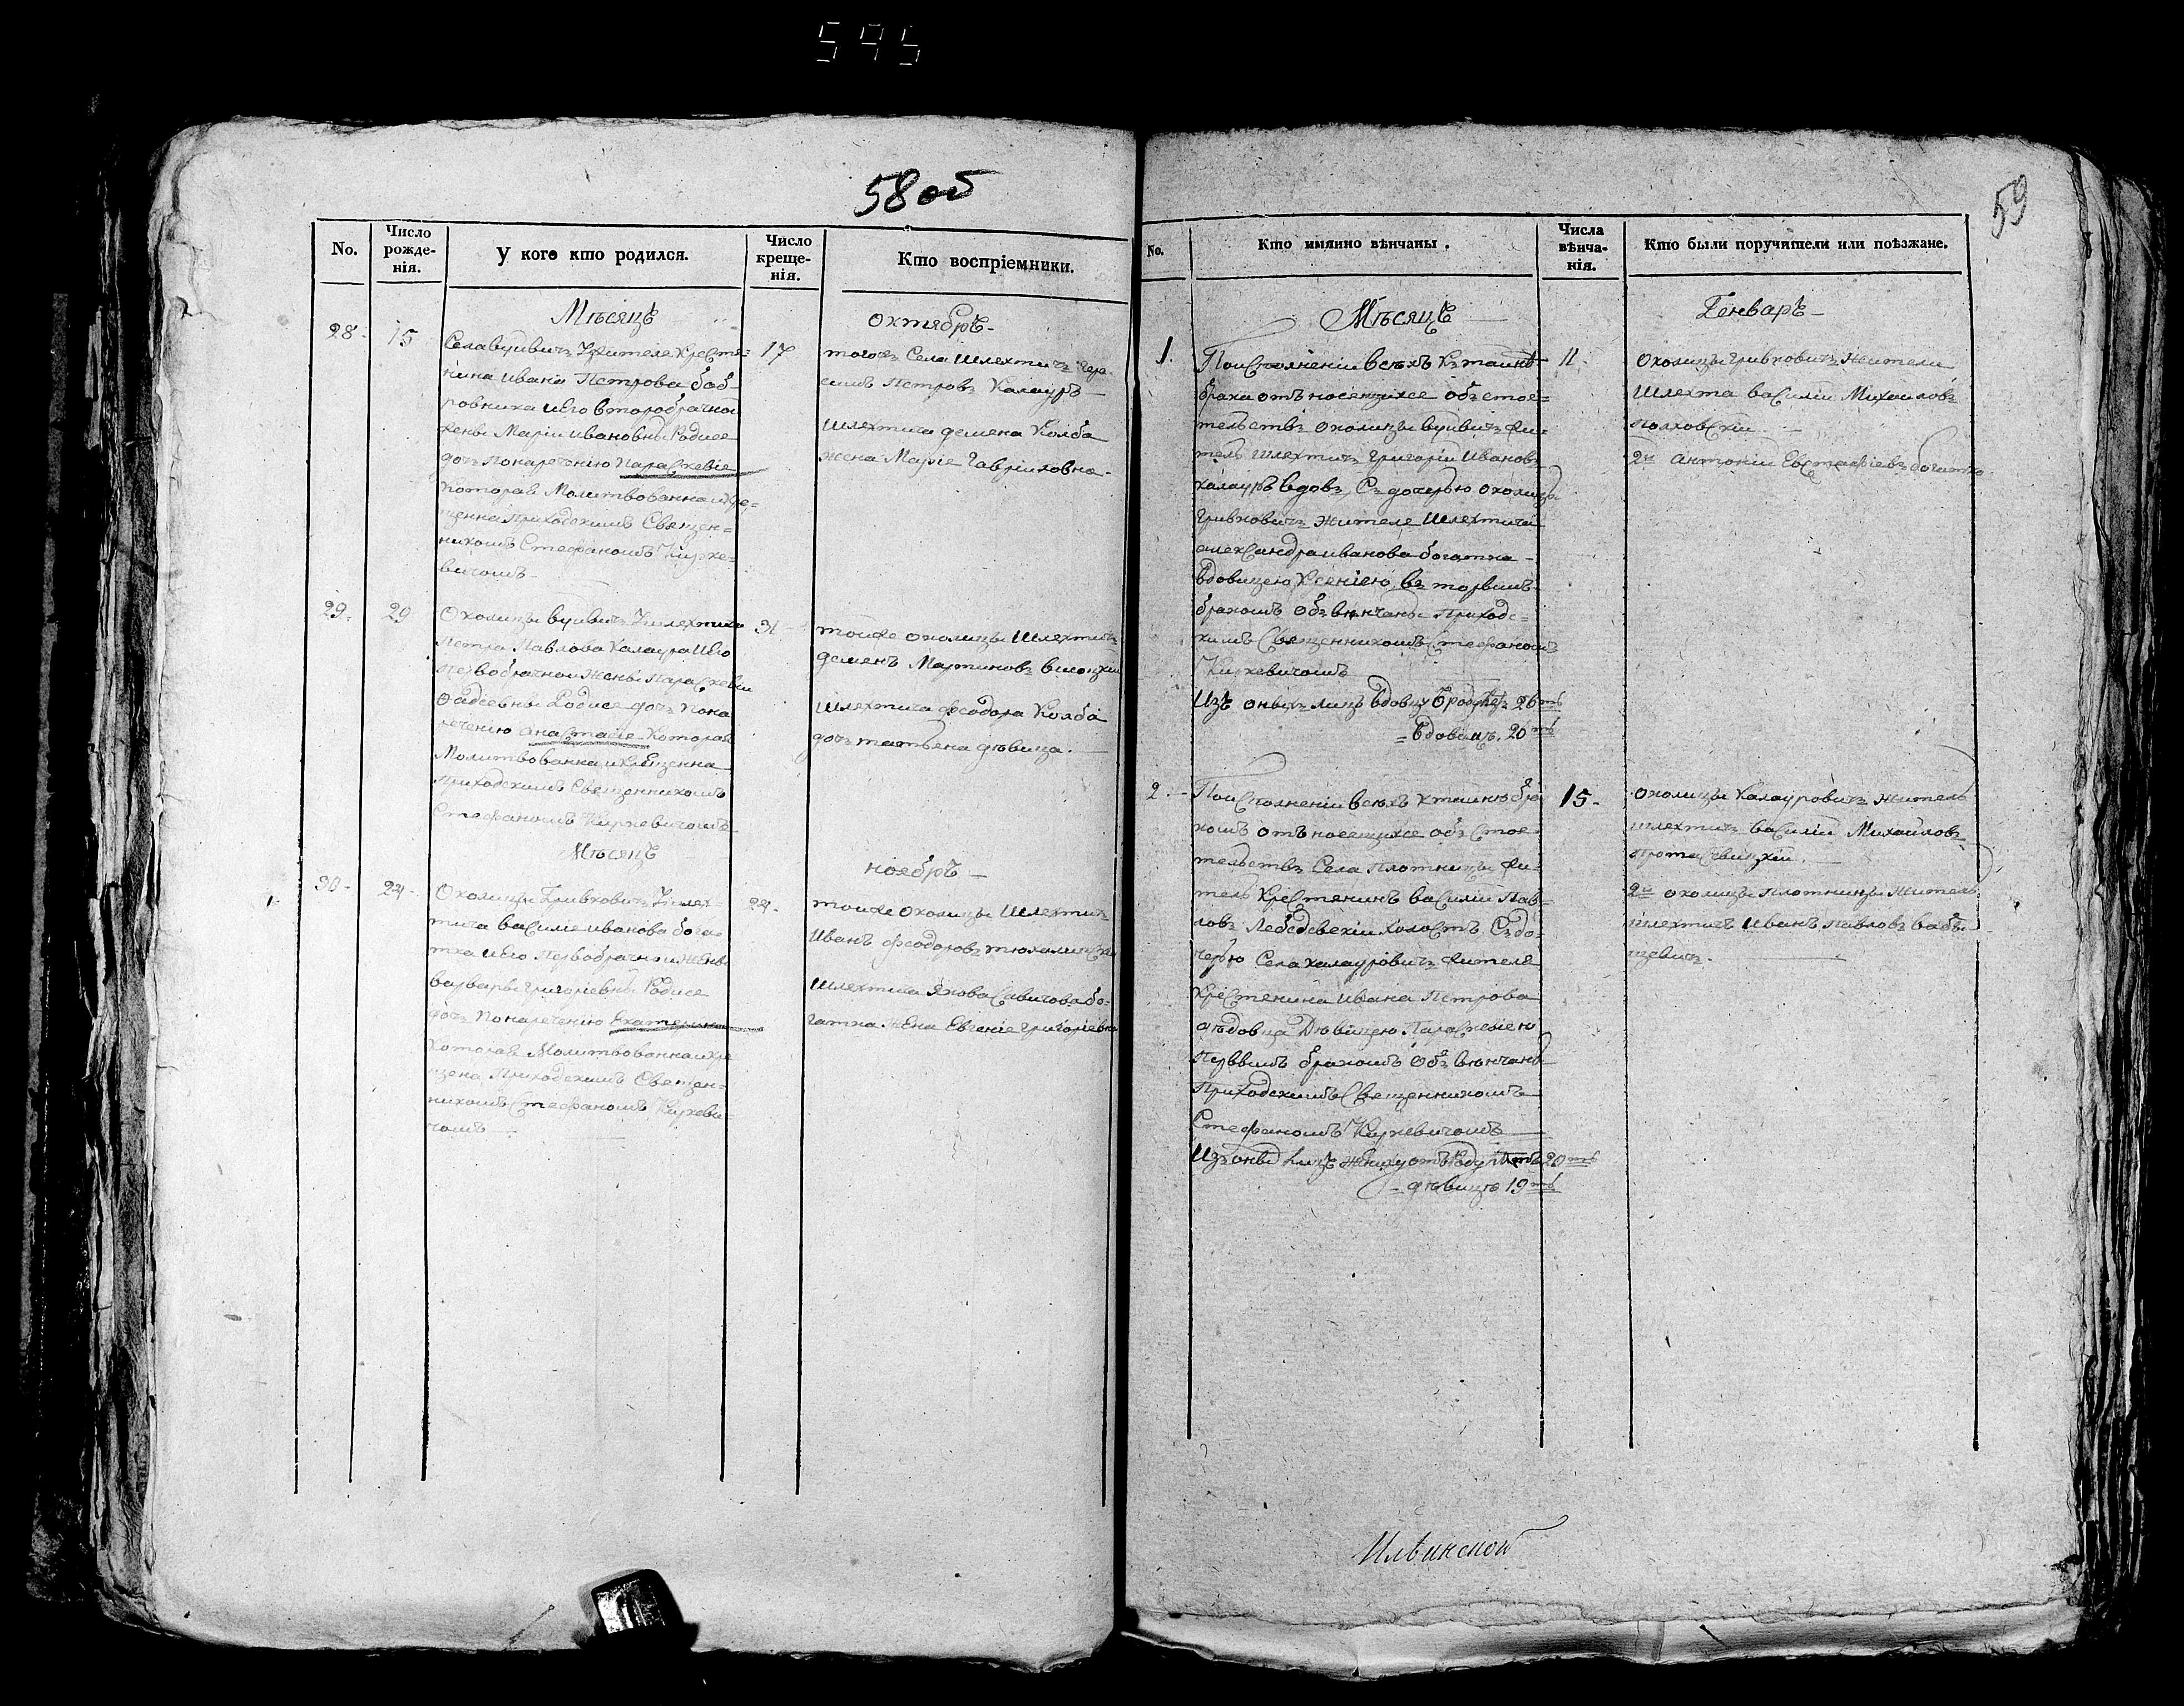 545
58 об
59
No.
Число рожденія.
У кого кто родился.
Число крещенія.
Кто воспріемники.
Мѣсяцъ
октябрь
28.
15
Села вуивичъ жителя крестя=
нина Ивана Петрова боб=
ровника и его второбрачной
жены Маріи Ивановны родися
дочь понареченію Параскевія
которая Молитвованна и кре=
щенна приходскимъ Священ=
никомъ Стефаномъ Киркe=
вичомъ
17
тогожъ Села шлехтичъ
Петровъ Калауръ
шлехтича семена Колба
жена Марія Гавріиловна
29.
29
Околицы вуивичъ шлехтича
Петра Павлова Калаура и его
первобрачной жены Параскевіи
Фадеевны родися дочь пона
реченію анастасія которая
Молитвованна и крещенна
приходскимъ Священникомъ
Стефаномъ Киркевичомъ
31
тойже околицы шлехтичъ
семенъ Мартиновъ
шлехтича феодора Колба
дочь татьяна дѣвица.
Мѣсяцъ
ноябрь
30
24
Околицы Гривковичъ шлех=
тича василия иванова бога=
тка и его первобрачной жены
варвары григоріевны родися
дочь понареченію Екатерина
которая Молитвованна и кре
щена Приходскимъ Священ=
никомъ Стефаномъ Киркеви=
чомъ
24.
тойже околицы шлехтичъ
Иванъ феодоровъ
шлехтича Якова Савичова бо=
гатка жена Евгенія григоріевна
No.
Кто имянно вѣнчаны.
Числа вѣнчанія.
Кто были поручители или поѣзжане.
Мѣсяцъ
Генварь
1.
По исполненіи всѣхъ къ таинѣ
брака относящихся обстоя=
тельствъ околицы вуивичъ жи=
тель шлехтичъ григорій Ивановъ
калауръ вдовъ, Съ дочерью околицы
гривковичъ жителя шлехтича
александра иванова богатка
вдовицею Ксеніею, вторымъ
бракомъ обвѣнчаны приход=
кимъ Священникомъ Стефаномъ
Киркевичомъ
Изъ оныхъ лицъ вдовцу отроду лѣтъ 26ть
= вдовицъ. 20ть
11.
околицы гривковичъ жители
шлехта василій Михайловъ
Полховскій
2й антоній Евстафіевъ богатко
2
По исполненіи всѣхъ к таинѣ бра
комъ относящихся обстоя=
тельствъ Села Плотницы жи=
тель крестянинъ василій Пав=
ловъ Лебедевскій холостъ. Съ до=
черью Села калауровичъ жителя
крестянина ивана Петрова
дѣдовца дѣвицею Параскевіею
первымъ бракомъ обвѣнчаны
приходскимъ Священникомъ
Стефаномъ Киркевичомъ
Изъ оныхъ лицъ жениху отъ роду лѣтъ 20ть
= дѣвицѣ 19ть
15.
околицы Калауровичъ житель
шлехтичъ василій Михайловъ
протасевицкій.
2й околицы плотницы житель
шлехтичъ Иванъ Павловъ
Илвинской